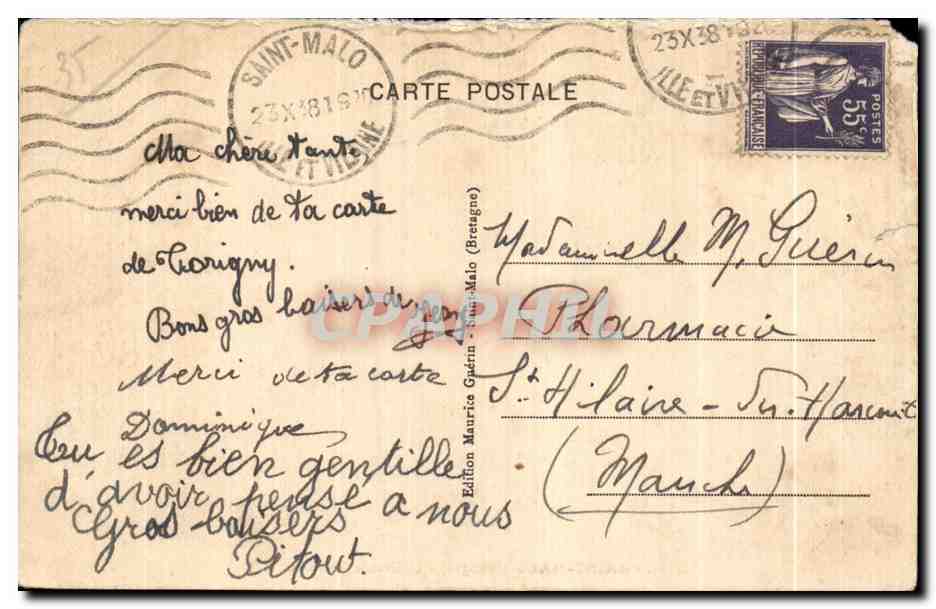 35
SAINT-MALO
23 X 38 19
ILLE ET VILAINE
CARTE POSTALE
23 X 38 19
ILLE ET VI
REPUBLIQUE FRANÇAISE
POSTES
55c
Ma chère tante
merci bien de ta carte
de Torigny.
Bons gros baisers de Jean
Merci de ta carte
Dominique
Tu es bien gentille
d'avoir pensé a nous
Gros baisers
Pitout.
Edition Maurice Guérin - Saint-Malo (Bretagne)
Mademoiselle M. Guérin
Pharmacie
St Hilaire-du-Harcouët
(Manche)
CPAPHIL